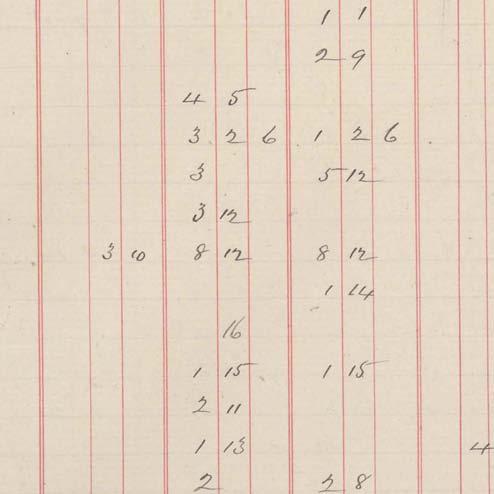 1 1
2 9
4 5
3 2 6 1 2 6
3 5 12
3 12
3 10 8 12 8 12
1 14
16
1 15 1 15
2 11
1 13 4
2 2 8